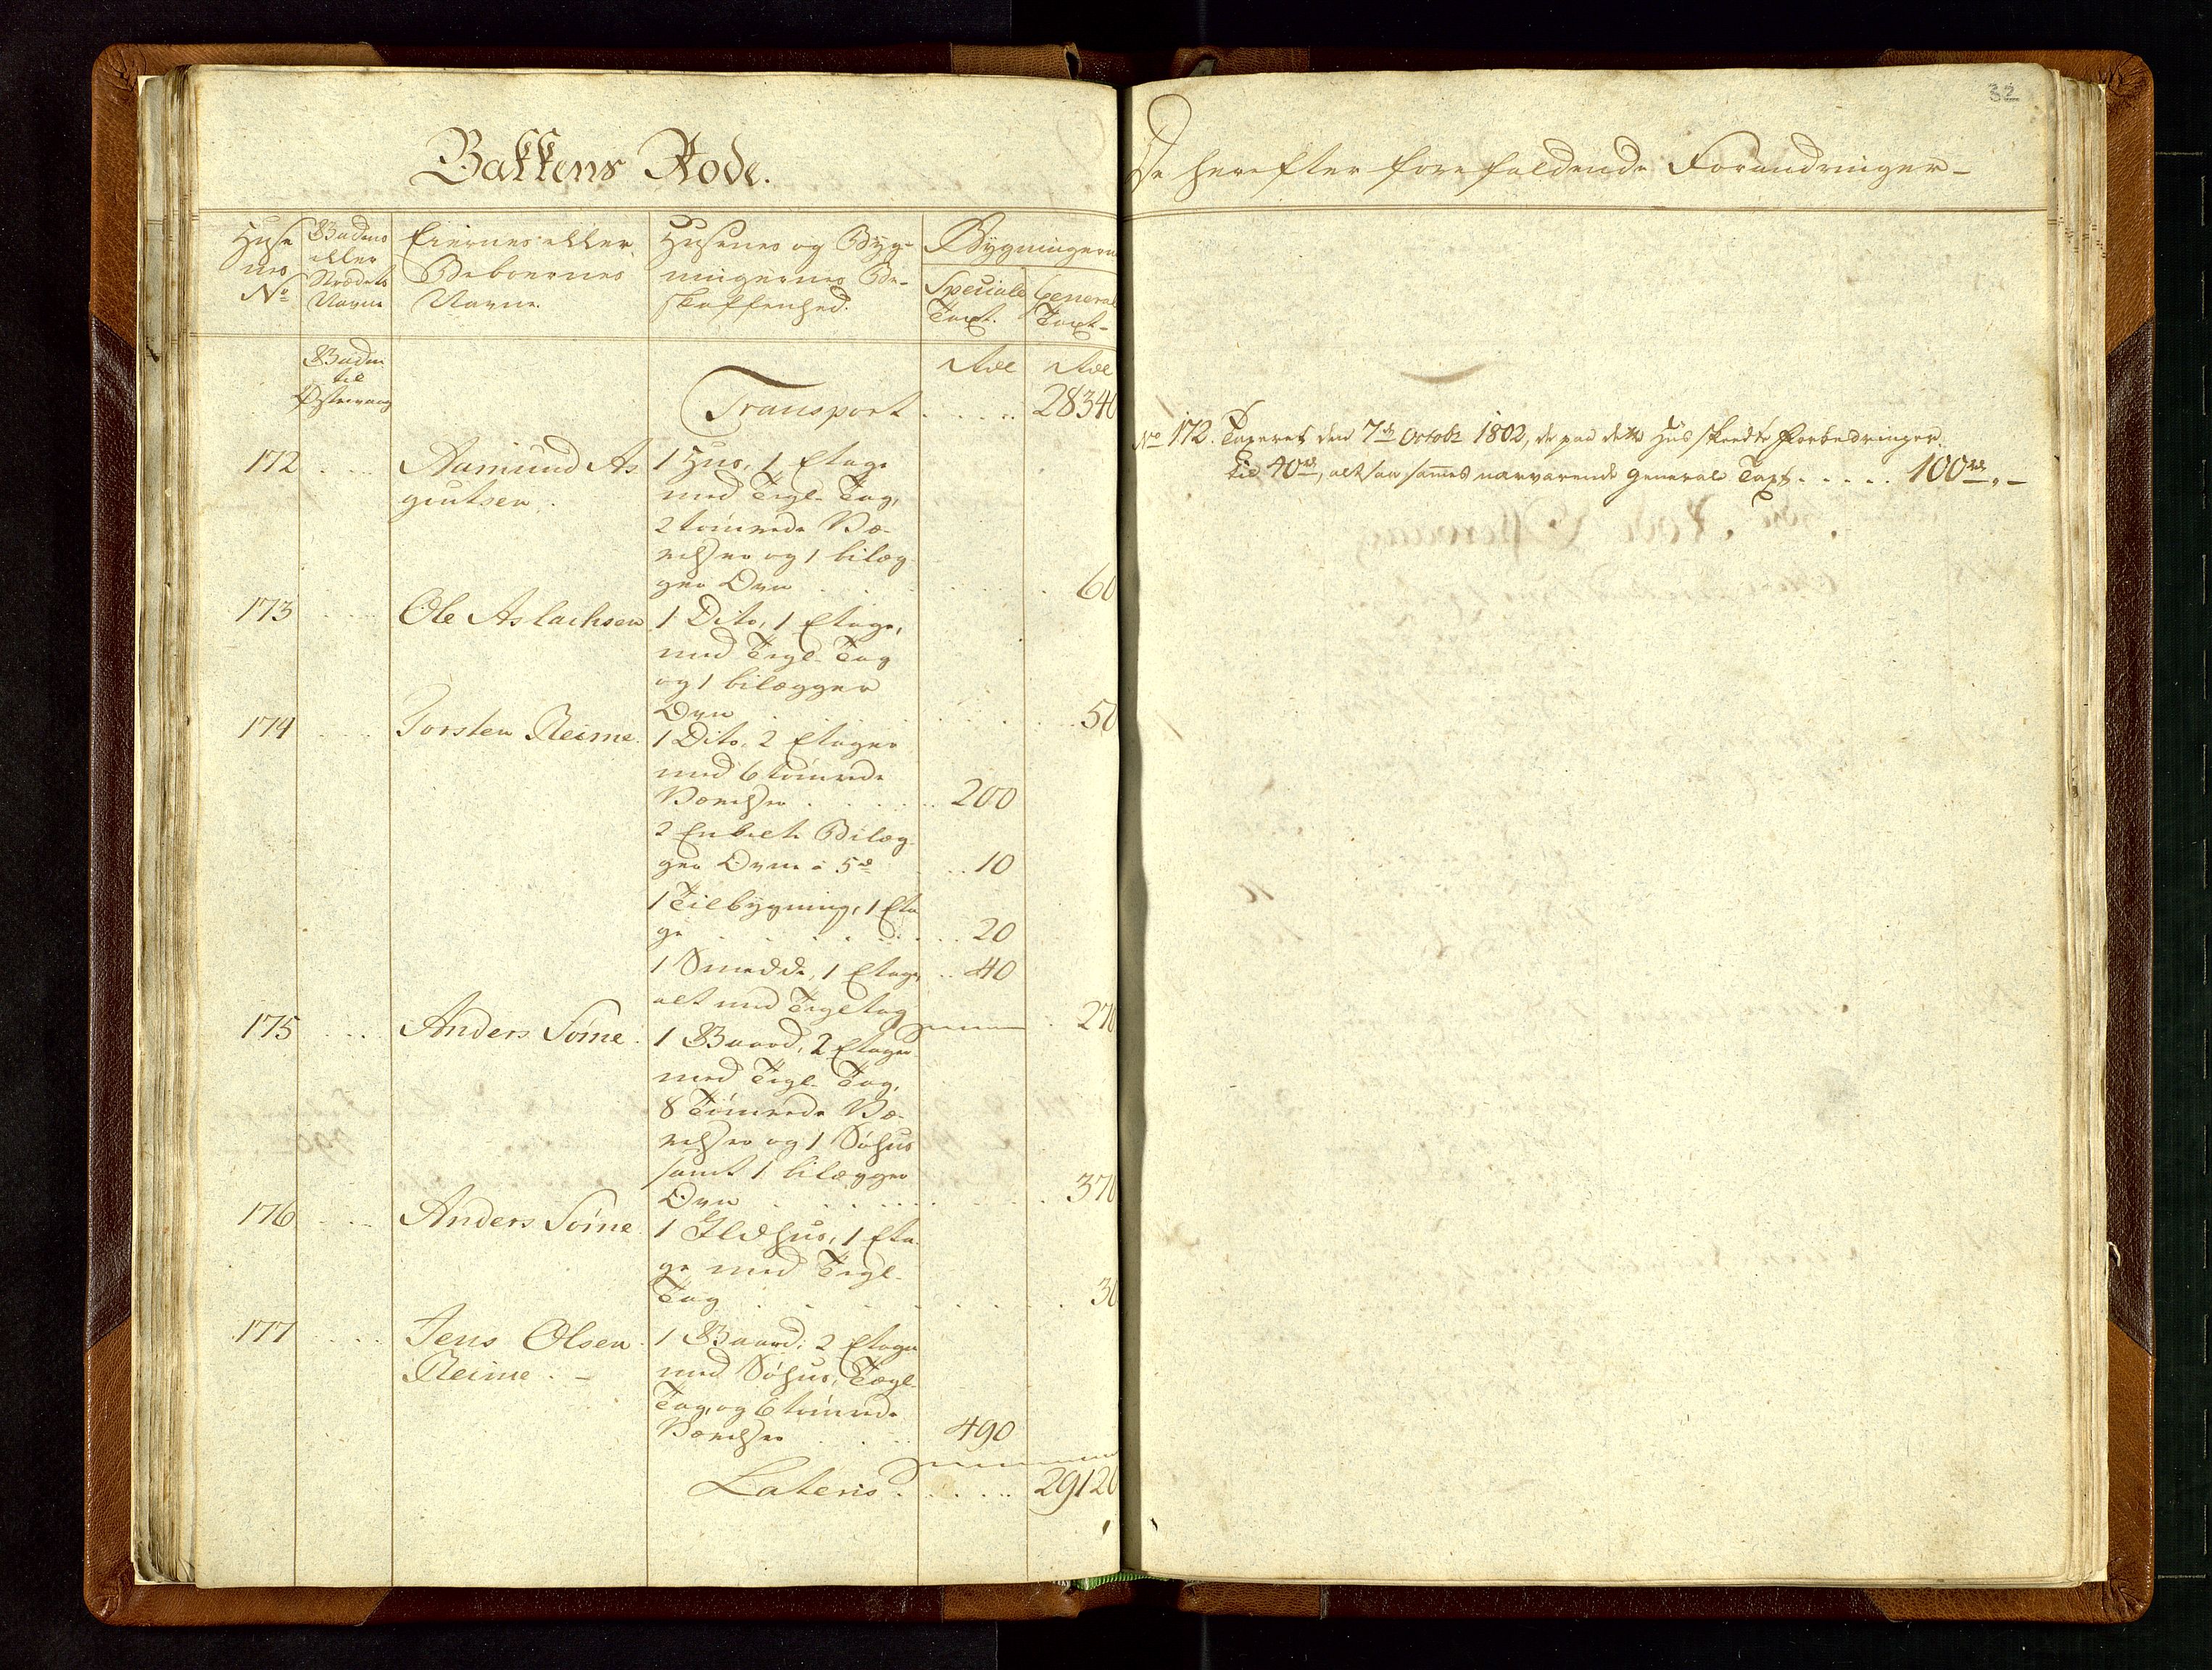 Bakkens Rode.
Huse
nes
No
Gadens
eller
Strædets
Navne
Eiernes eller
Beboernes
Navne
Husenes og Byg-
ningernes Be-
skaffenhed.
Bygningern
Speciale
Taxt.
General
Taxt-
Gaden
til
Østervaag
Rdl
Rdl
Transport . . . . . 28340
172 . . . Aamund As
giutsen.
1 Huus, 1 Etage
med Tegl-Tag,
2 tømrede Væ-
relser og 1 bilæg
ger Ovn . . . . . 60
173 . . . Ole Aslachsen
1 Dito, 1 Etage,
med Tegl-Tag
og 1 bilægger
Ovn . . . . . 50
174 . . . Torsten Reime.
1 Dito, 2 Etager
med 6 tømrede
Værelser . . . . . 200
2 Enkelte Bilæg-
ger Ovne á 5rd . . . 10
1 Tilbygning, 1 Eta
ge . . . . . 20
1 Smedde, 1 Etage . . 40
alt med Tegltag . 270
175 . . . Anders Sóme.
1 Gaard, 2 Etager
med Tegl-Tag,
8 Tømrede Væ-
relser og 1 Søhus
samt 1 bilægger
Ovn . . . . . 370
176 . . . Anders Sóme
1 Ildhus, 1 Eta
ge med Tegl-
Tag . . . . . 30
177 . . . Jens Olsen
Reime. -
1 Gaard, 2 Etager
med Søhus, Tegl-
Tag, og 6 tømrede
Værelser . . . 490
Lateris . . . . . 29120
32
De herefter forefaldende Forandringer-
No 172. Taxeret den 7de Octobr 1802, de paa dette Huus skeedte Forbedringer
til 40rd, altsaa sammes nærværende General Taxt . . . . . 100rd. -